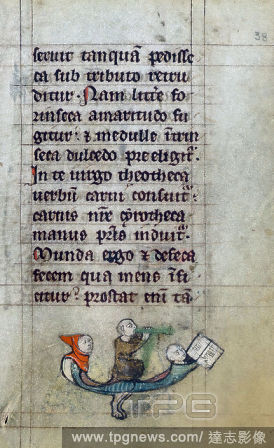 38
seruit tanquã pedisse
ca sub tributo retru
ditur. Nam litte fo
rinseca amaritudo fu
gitur: & medulle ĩtrin
seca dulcedo pre eligit̃.
In te uirgo theotheca
uerbũ carni consuit̃.
carnis nr̃e cyrotheca
manus pr̃is induit̃.
Munda ergo & defeca
fecem qua mens ĩfi
citur: prostat eni ta
TPG
www.tpgnews.com/達志影像